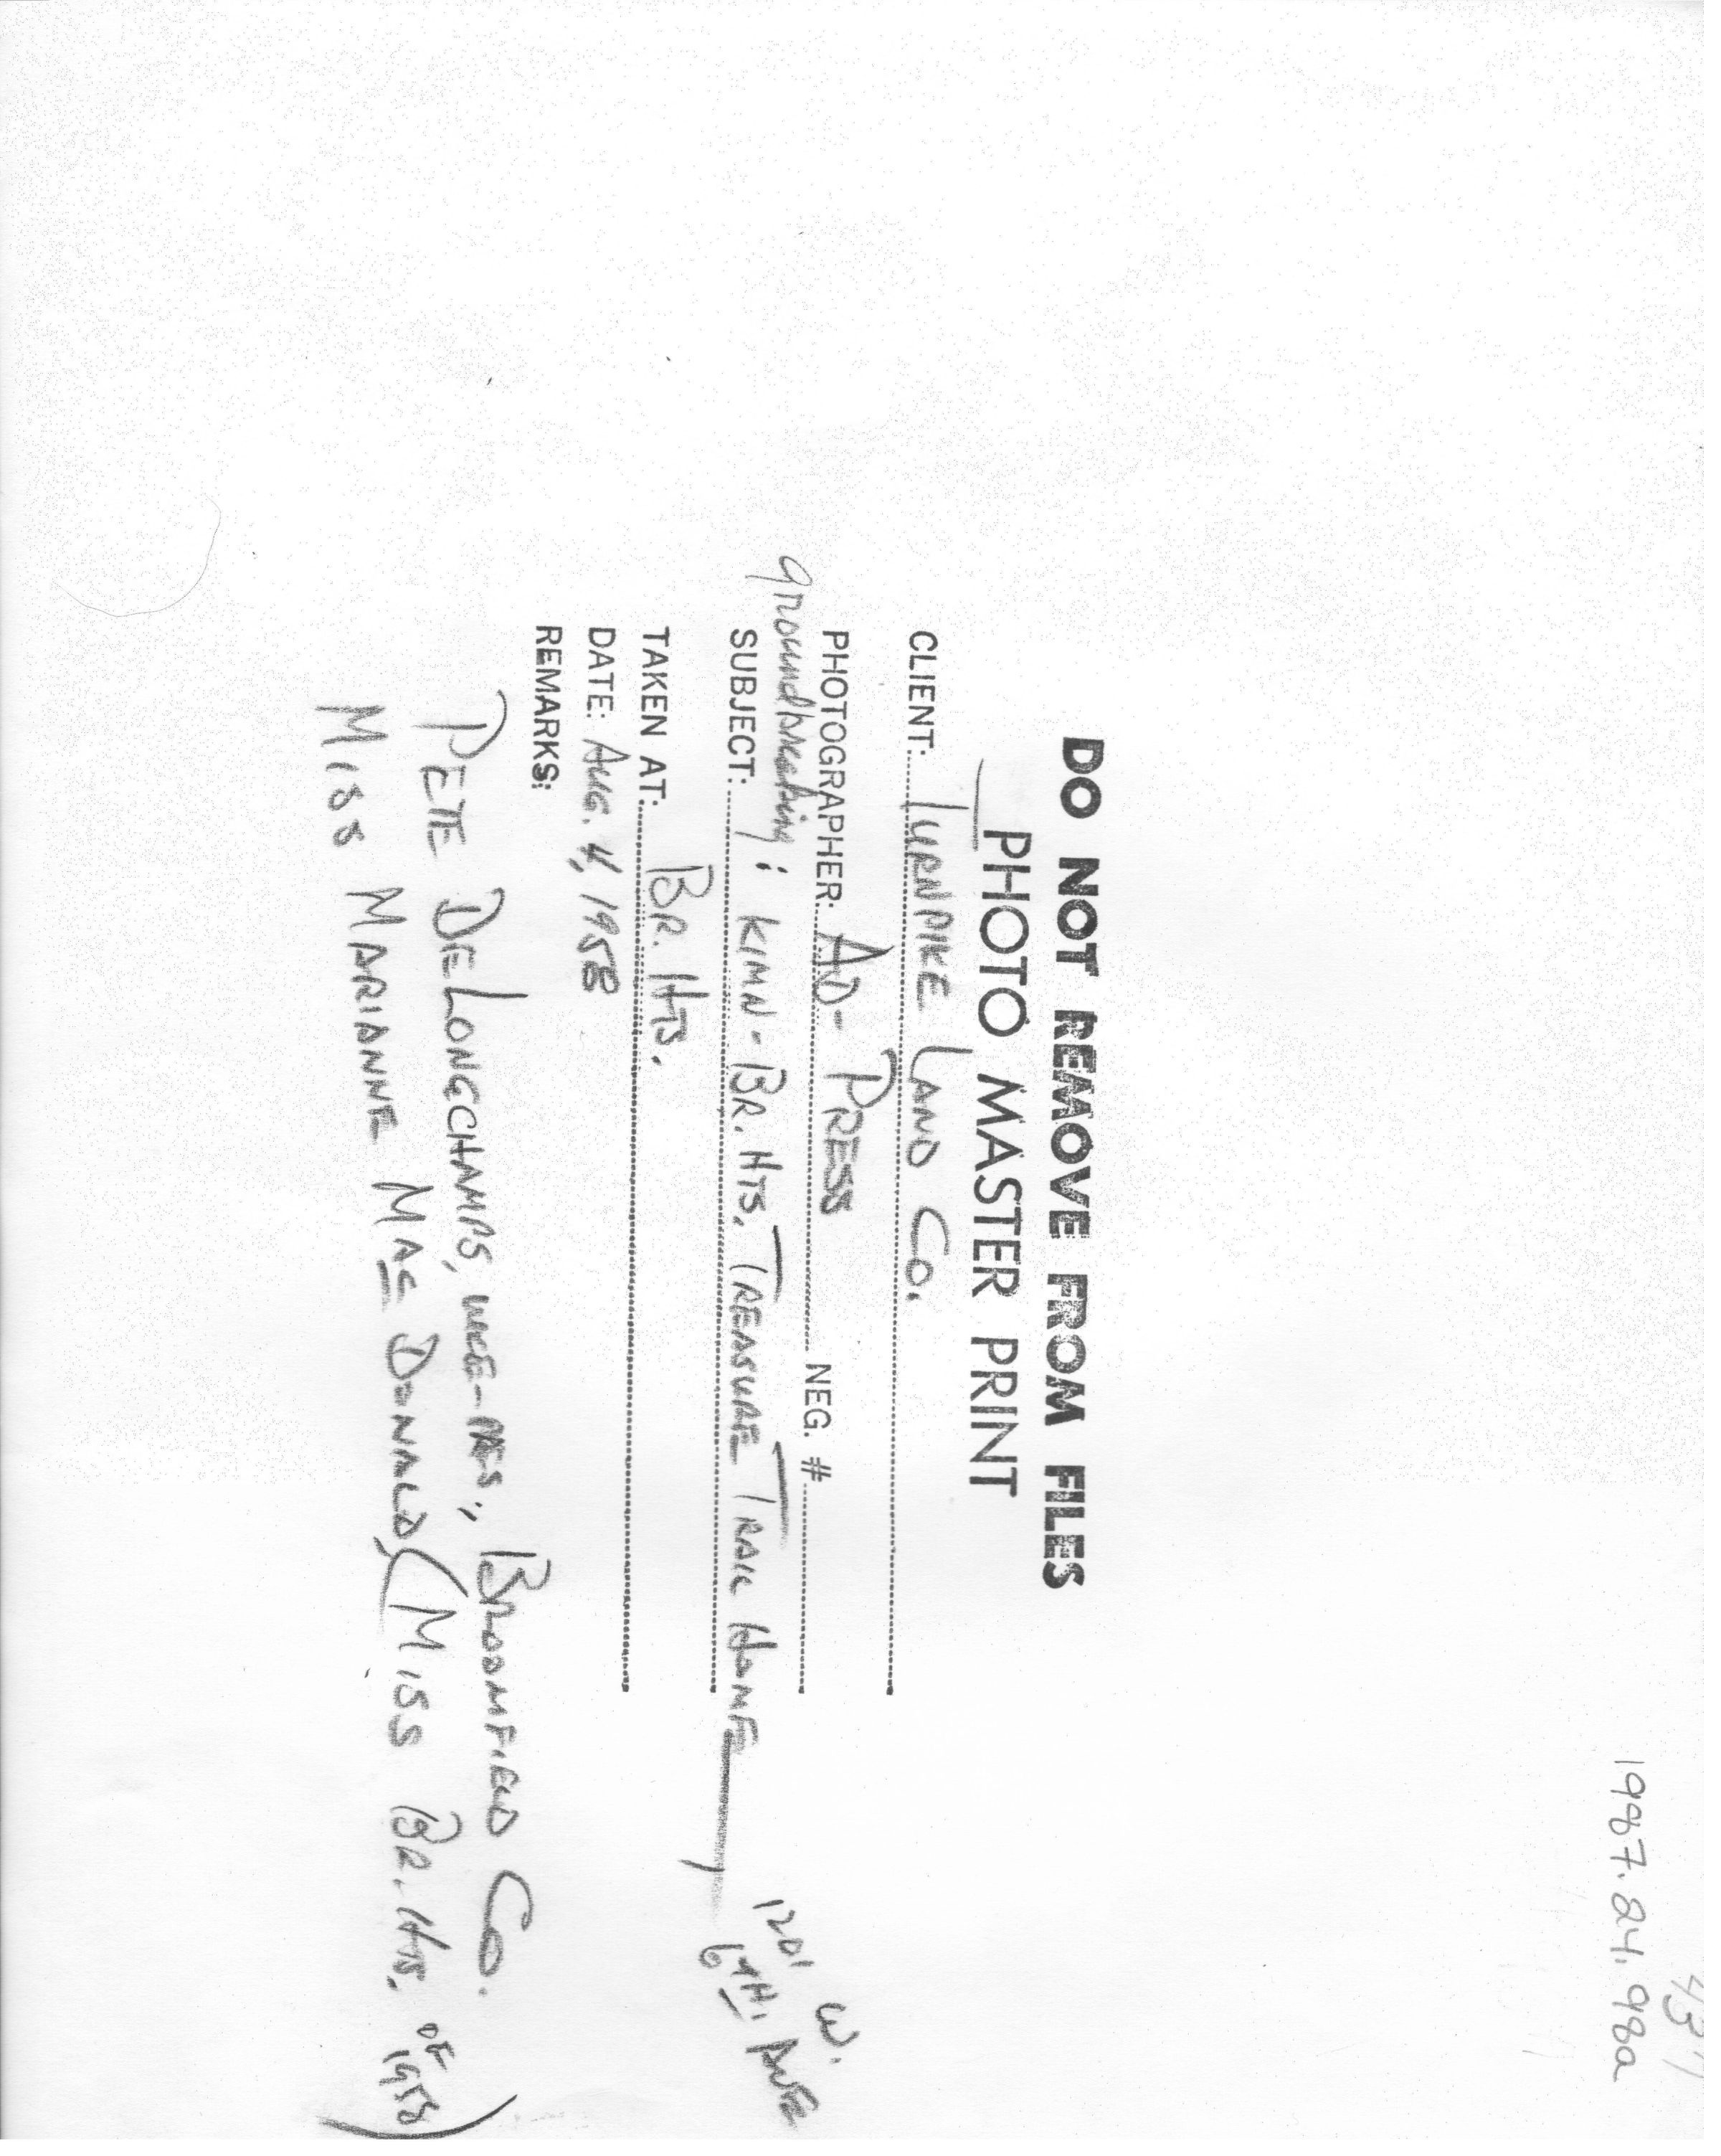 1987.24.98a
DO NOT REMOVE FROM FILES
PHOTO MASTER PRINT
CLIENT: TURNPIKE LAND CO.
PHOTOGRAPHER: AD-PRESS NEG. #
groundbreaking:
SUBJECT: KIMN-BR. HTS. TREASURE TRAIL HOME
1201 W.
6TH. AVE
TAKEN AT: BR. HTS.
DATE: AUG. 4, 1958
REMARKS:
PETE DELONGCHAMPS, VICE-PRES., BROOMFIELD CO.
MISS MARIANNE MAC DONALD (MISS BR. HTS. OF 1958)